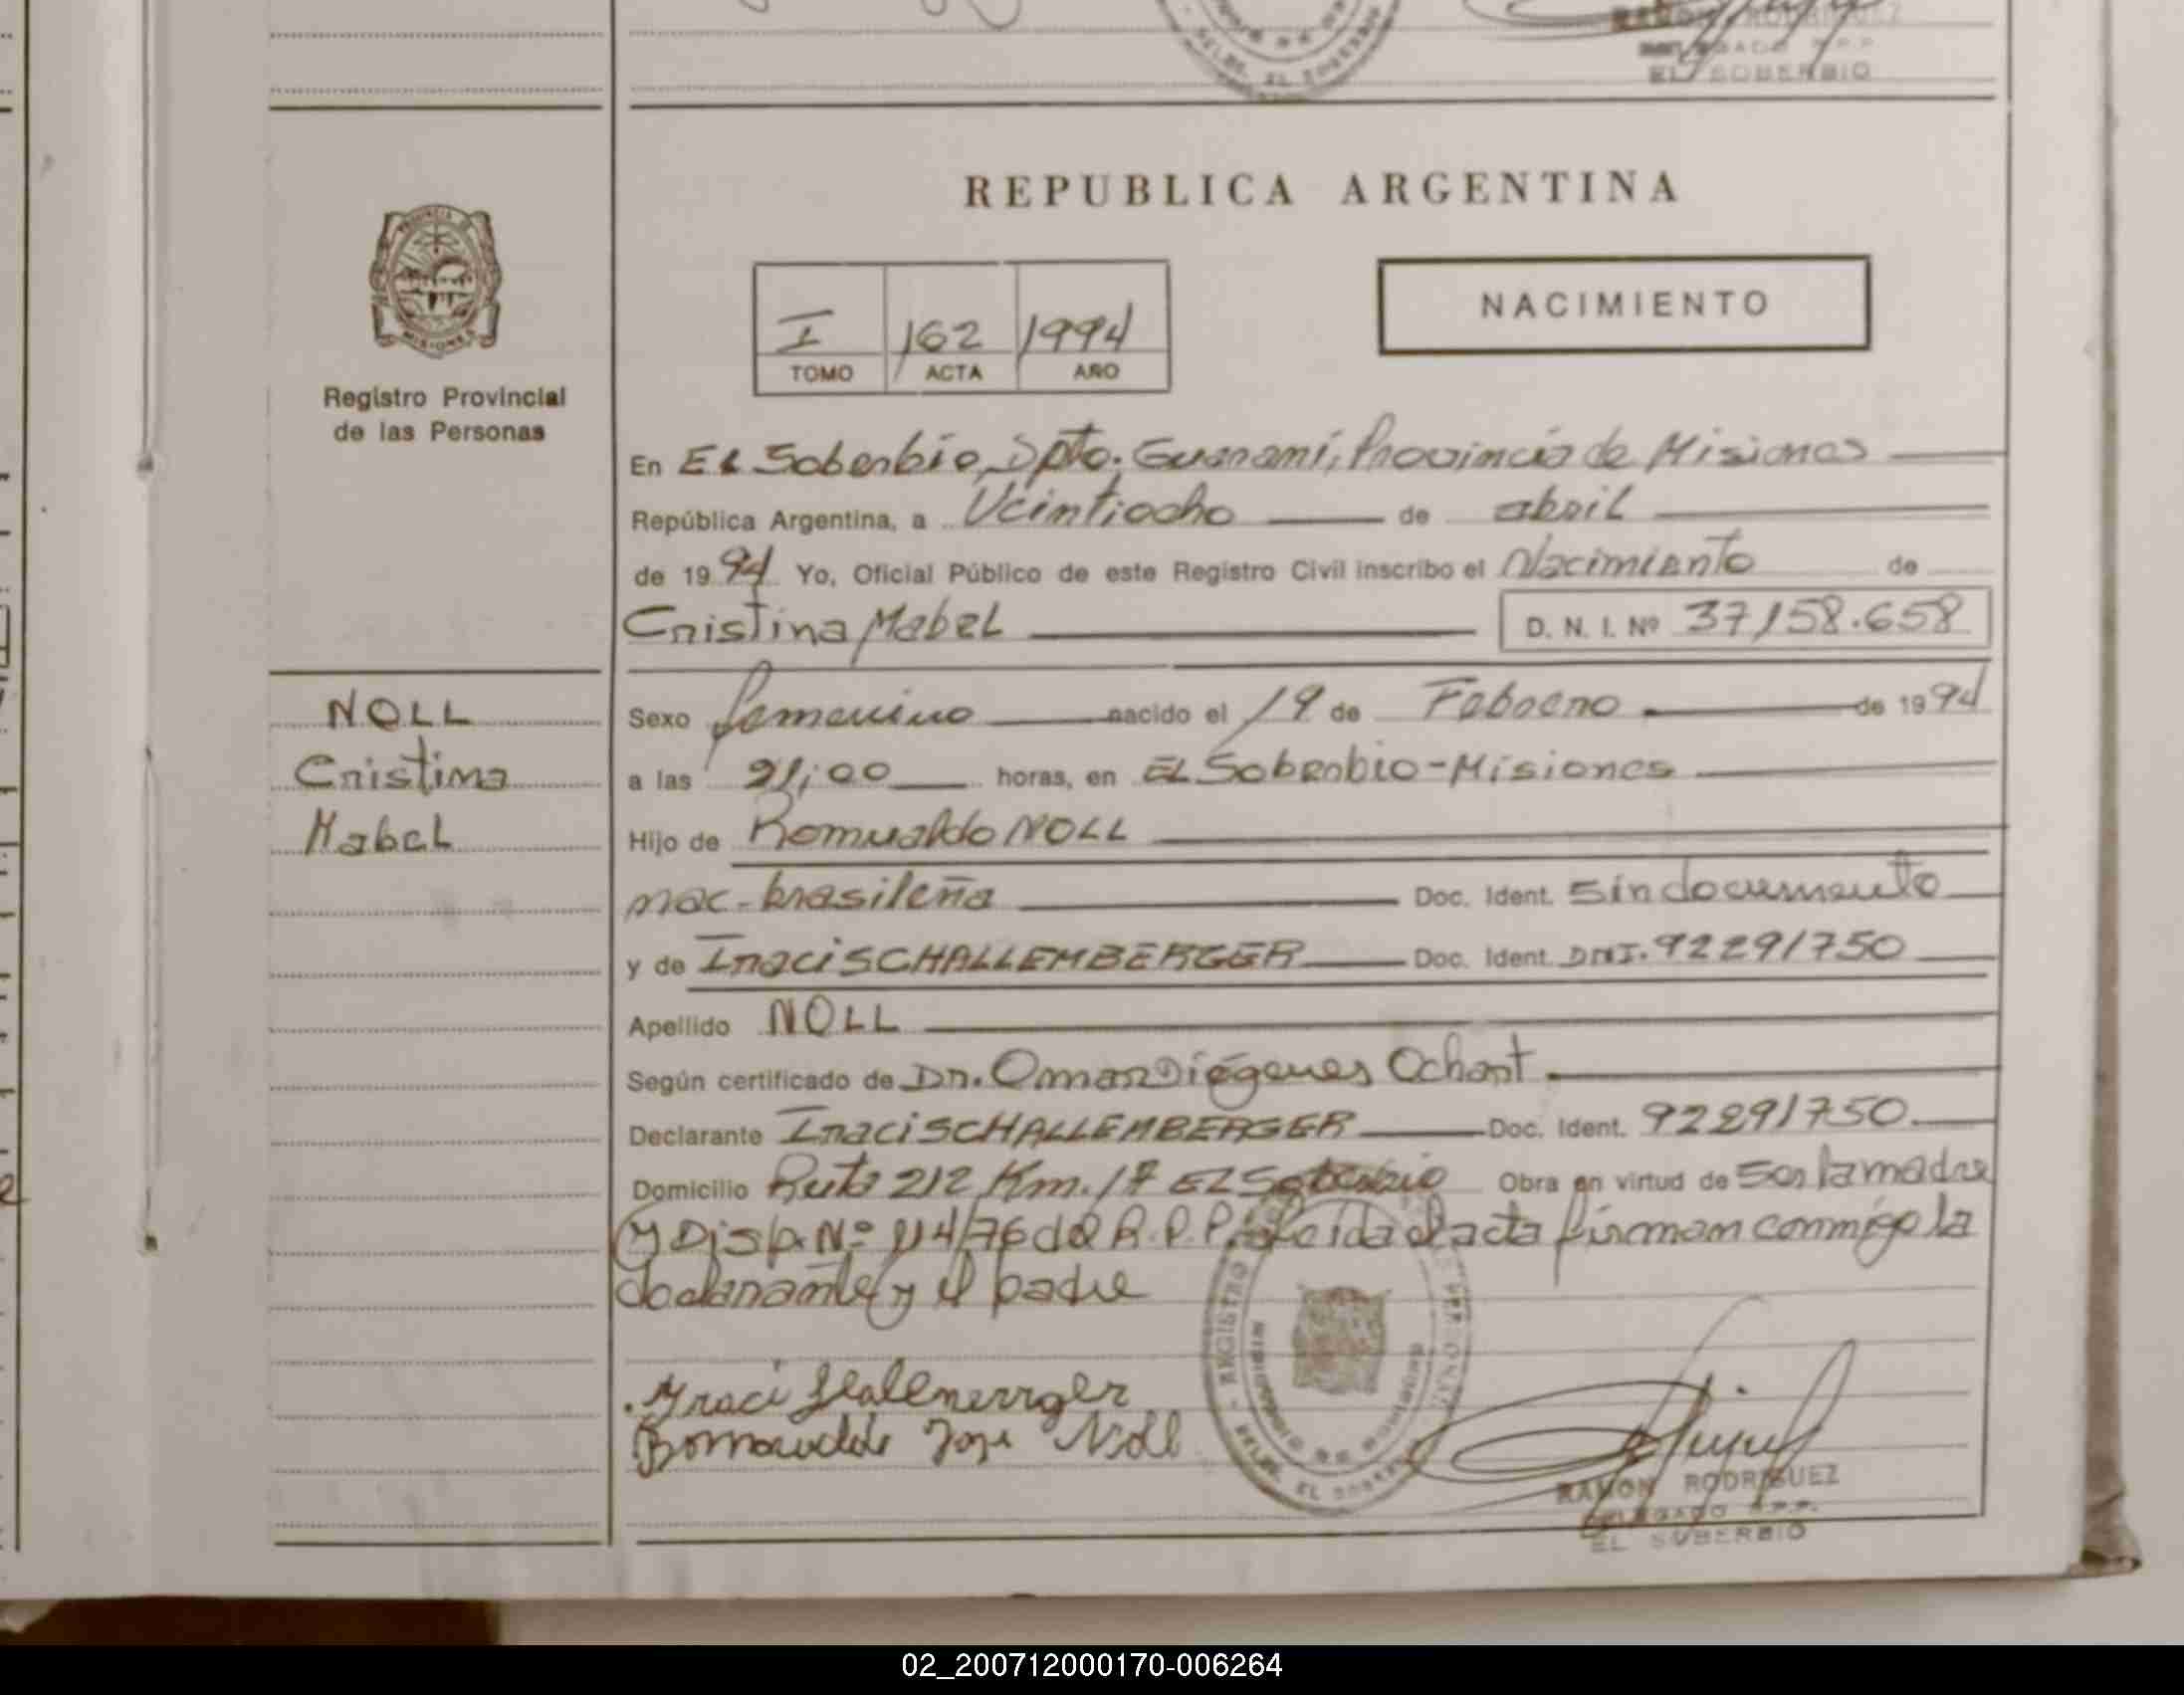 RAMON RODRIGUEZ
EL SOBERBIO
REPUBLICA ARGENTINA
PROVINCIA DE
MISIONES
Registro Provincial
de las Personas
I 162 1994
TOMO ACTA AÑO
NACIMIENTO
En El Soberbio, Dpto. Guaraní, Provincia de Misiones
República Argentina, a Veintiocho de abril
de 1994 Yo, Oficial Público de este Registro Civil inscribo el Nacimiento de
Cristina Mabel D. N. I. Nº 37158.658
NOLL
Cristina
Mabel
Sexo femenino nacido el 19 de Febrero de 1994
a las 21;00 horas, en El Soberbio-Misiones
Hijo de Romualdo NOLL
nac. brasileña Doc. Ident. sin documento
y de Inaci SCHALLEMBERGER Doc. Ident. DNI. 92291750
Apellido NOLL
Según certificado de Dr. Omar Diógenes Ochart
Declarante Inaci SCHALLEMBERGER Doc. Ident. 92291750
Domicilio Ruta 212 Km. 17 El Soberbio Obra en virtud de ser la madre
y Disp. Nº 114/76 del R.P.P. Leida el acta firman conmigo la
declarante y el padre
Noll
RAMON RODRIGUEZ
DELEGADO R.P.P.
EL SOBERBIO
02_200712000170-006264